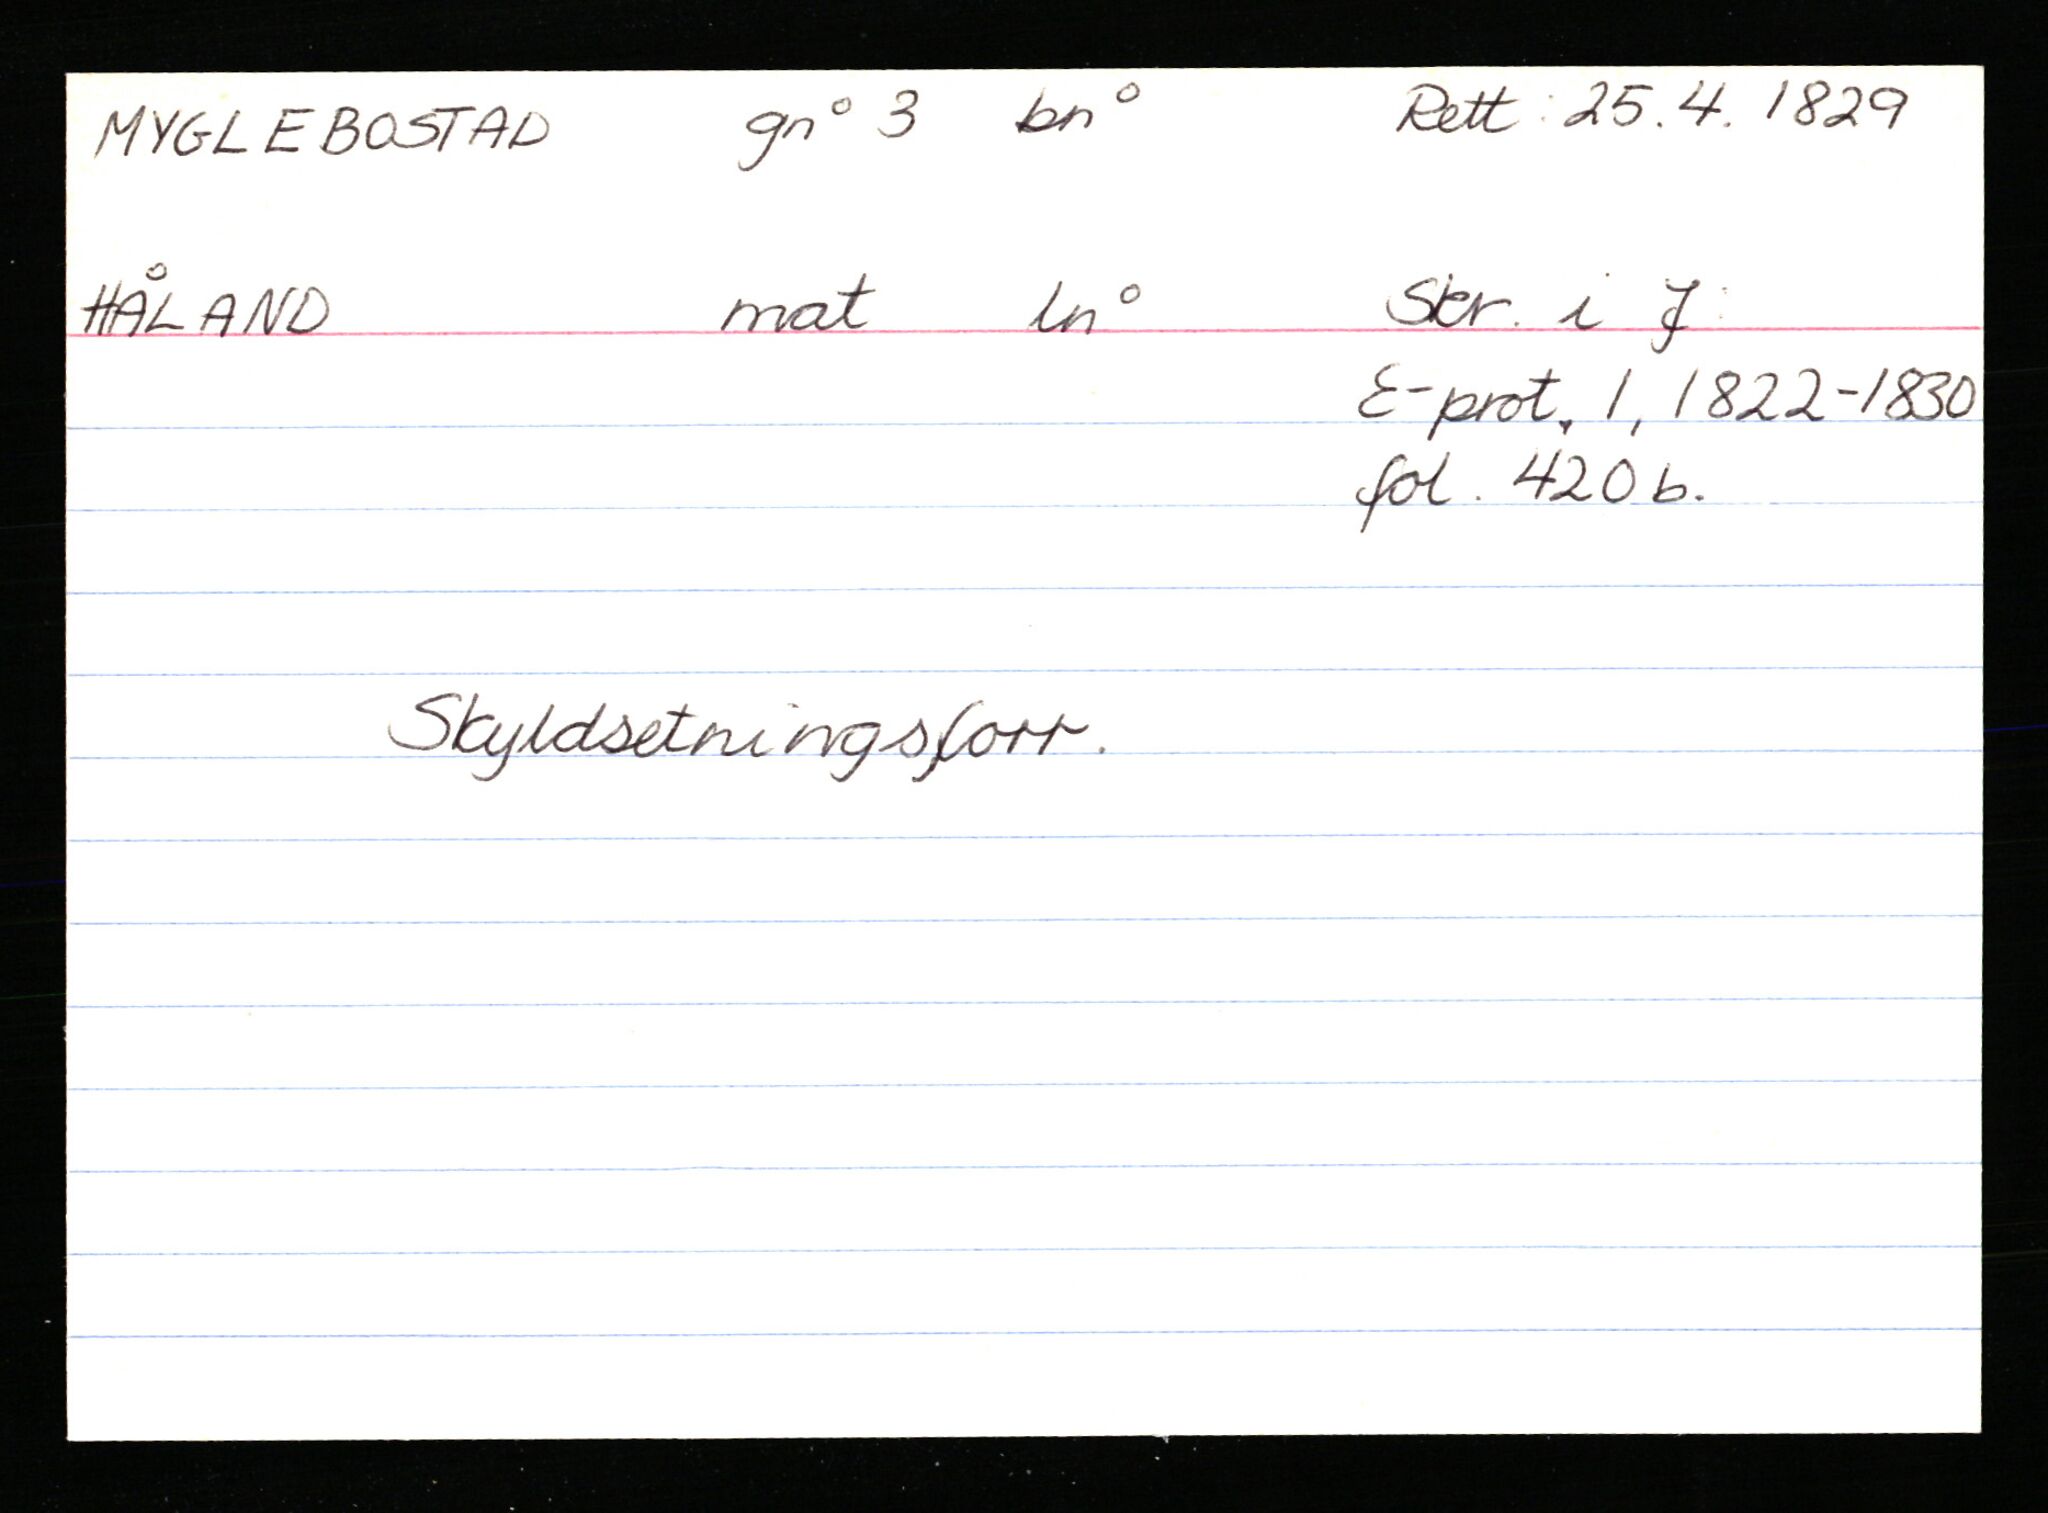 MYGLEBOSTAD gn° 3 bn° Rett: 25.4.1829
HÅLAND mat ln° Skr. i J:
E-prot. 1, 1822-1830
fol. 420b.
Skyldsetningsforr.